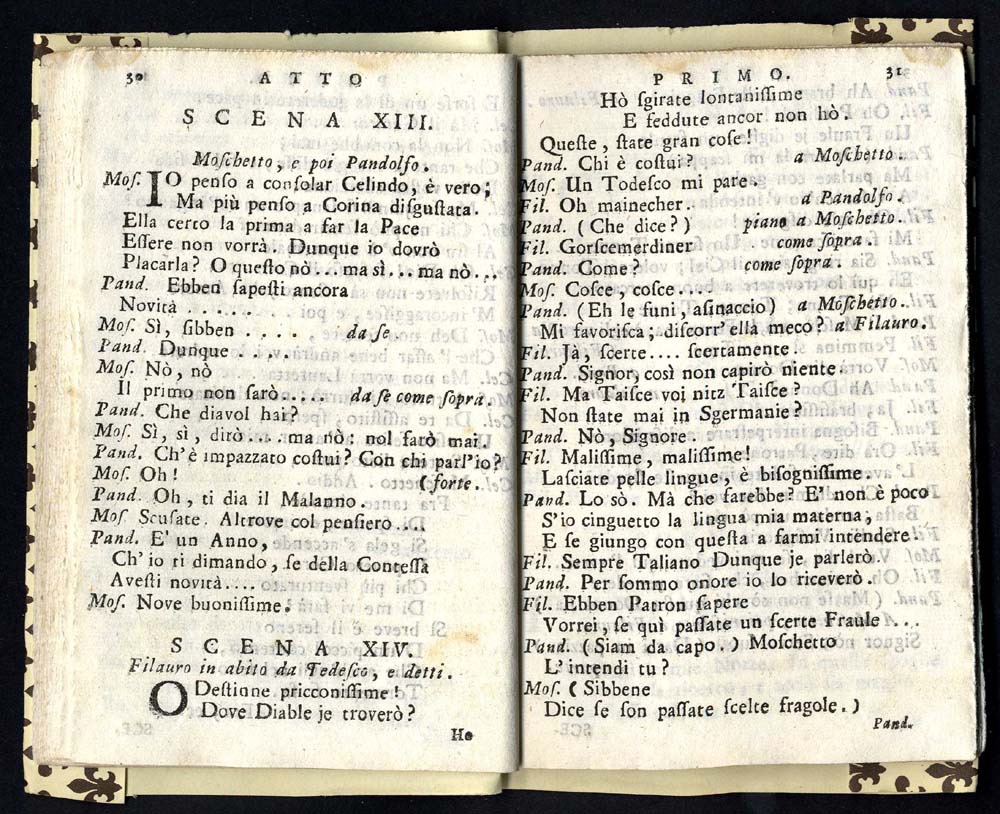 30 ATTO
SCENA XIII.
Moſchetto, poi Pandolfo.
Moſ. IO penſo a conſolar Celindo, è vero;
Ma più penſo a Corina diſguſtata.
Ella certo la prima a far la Pace
Eſſere non vorrà. Dunque io dovrò
Placarla? O queſto nò... ma sì... ma nò...
Pand. Ebben ſapeſti ancora
Novità . . . . . .
Moſ. Sì, ſibben . . . . . da ſe.
Pand. Dunque . . . . .
Moſ. Nò, nò
Il primo non ſarò..... da ſe come ſopra.
Pand. Che diavol hai?
Moſ. Sì, sì, dirò.... ma nò: nol farò mai.
Pand. Ch'è impazzato coſtui? Con chi parl'io?
Moſ. Oh! (forte.
Pand. Oh, ti dia il Malanno.
Moſ. Scuſate. Altrove col penſiero...
Pand. E' un Anno,
Ch' io ti dimando, ſe della Conteſſa
Aveſti novità....
Moſ. Nove buoniſſime.
SCENA XIV.
Filauro in abito da Tedeſco, e detti.
O Deſtinne pricconiſſime!
Dove Diable je troverò?
Ho
PRIMO. 31
Hò ſgirate lontaniſſime
E ſeddute ancor non hò.
Queſte, ſtate gran coſe!
Pand. Chi è coſtui? a Moſchetto.
Moſ. Un Todeſco mi pare.
Fil. Oh mainecher. a Pandolfo.
Pand. (Che dice?) piano a Moſchetto.
Fil. Gorſcemerdiner come ſopra.
Pand. Come? come ſopra.
Moſ. Coſce, coſce....
Pand. (Eh le funi, aſinaccio) a Moſchetto.
Mi favoriſca; diſcorr'ella meco? a Filauro.
Fil. Jà, ſcerte.... ſcertamente.
Pand. Signor, così non capirò niente.
Fil. Ma Taiſce voi nitz Taiſce?
Non ſtate mai in Sgermanie?
Pand. Nò, Signore.
Fil. Maliſſime, maliſſime!
Laſciate pelle lingue, è biſogniſſime.
Pand. Lo sò. Mà che ſarebbe? E' non è poco
S'io cinguetto la lingua mia materna;
E ſe giungo con queſta a farmi intendere
Fil. Sempre Taliano Dunque je parlerò.
Pand. Per ſommo onore io lo riceverò.
Fil. Ebben Patron ſapere
Vorrei, ſe quì paſſate un ſcerte Fraule...
Pand. (Siam da capo.) Moſchetto
L'intendi tu?
Moſ. (Sibbene
Dice ſe ſon paſſate ſcelte fragole.)
Pand.